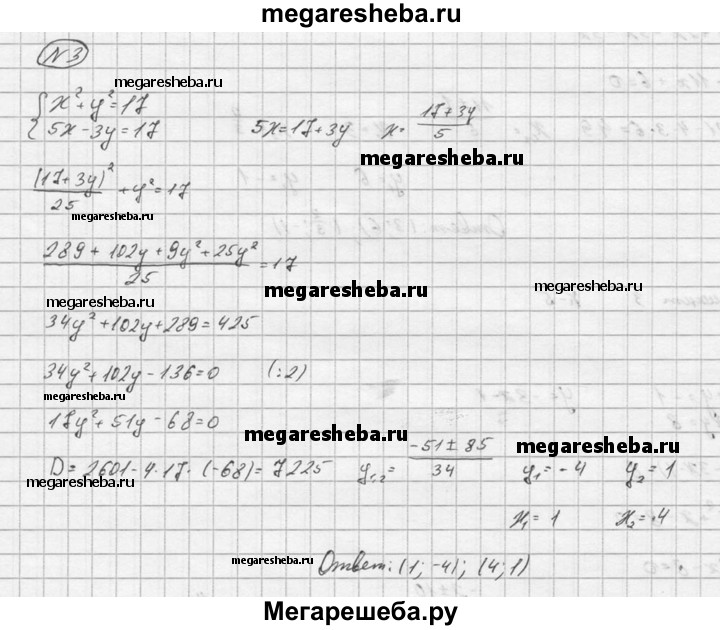 megaresheba.ru
N3
megaresheba.ru
{ x² + y² = 17
5x - 3y = 17 5x = 17 + 3y x = (17 + 3y)/5
megaresheba.ru
(17 + 3y)²/25 + y² = 17
megaresheba.ru
(289 + 102y + 9y² + 25y²)/25 = 17
megaresheba.ru megaresheba.ru megaresheba.ru
34y² + 102y + 289 = 425
34y² + 102y - 136 = 0 (:2)
17y² + 51y - 68 = 0
megaresheba.ru megaresheba.ru
D = 2601 - 4·17·(-68) = 7225 y₁,₂ = (-51 ± 85)/34 y₁ = -4 y₂ = 1
megaresheba.ru
x₁ = 1 x₂ = 4
megaresheba.ru Ответ: (1; -4); (4; 1)
Мегарешеба.ру